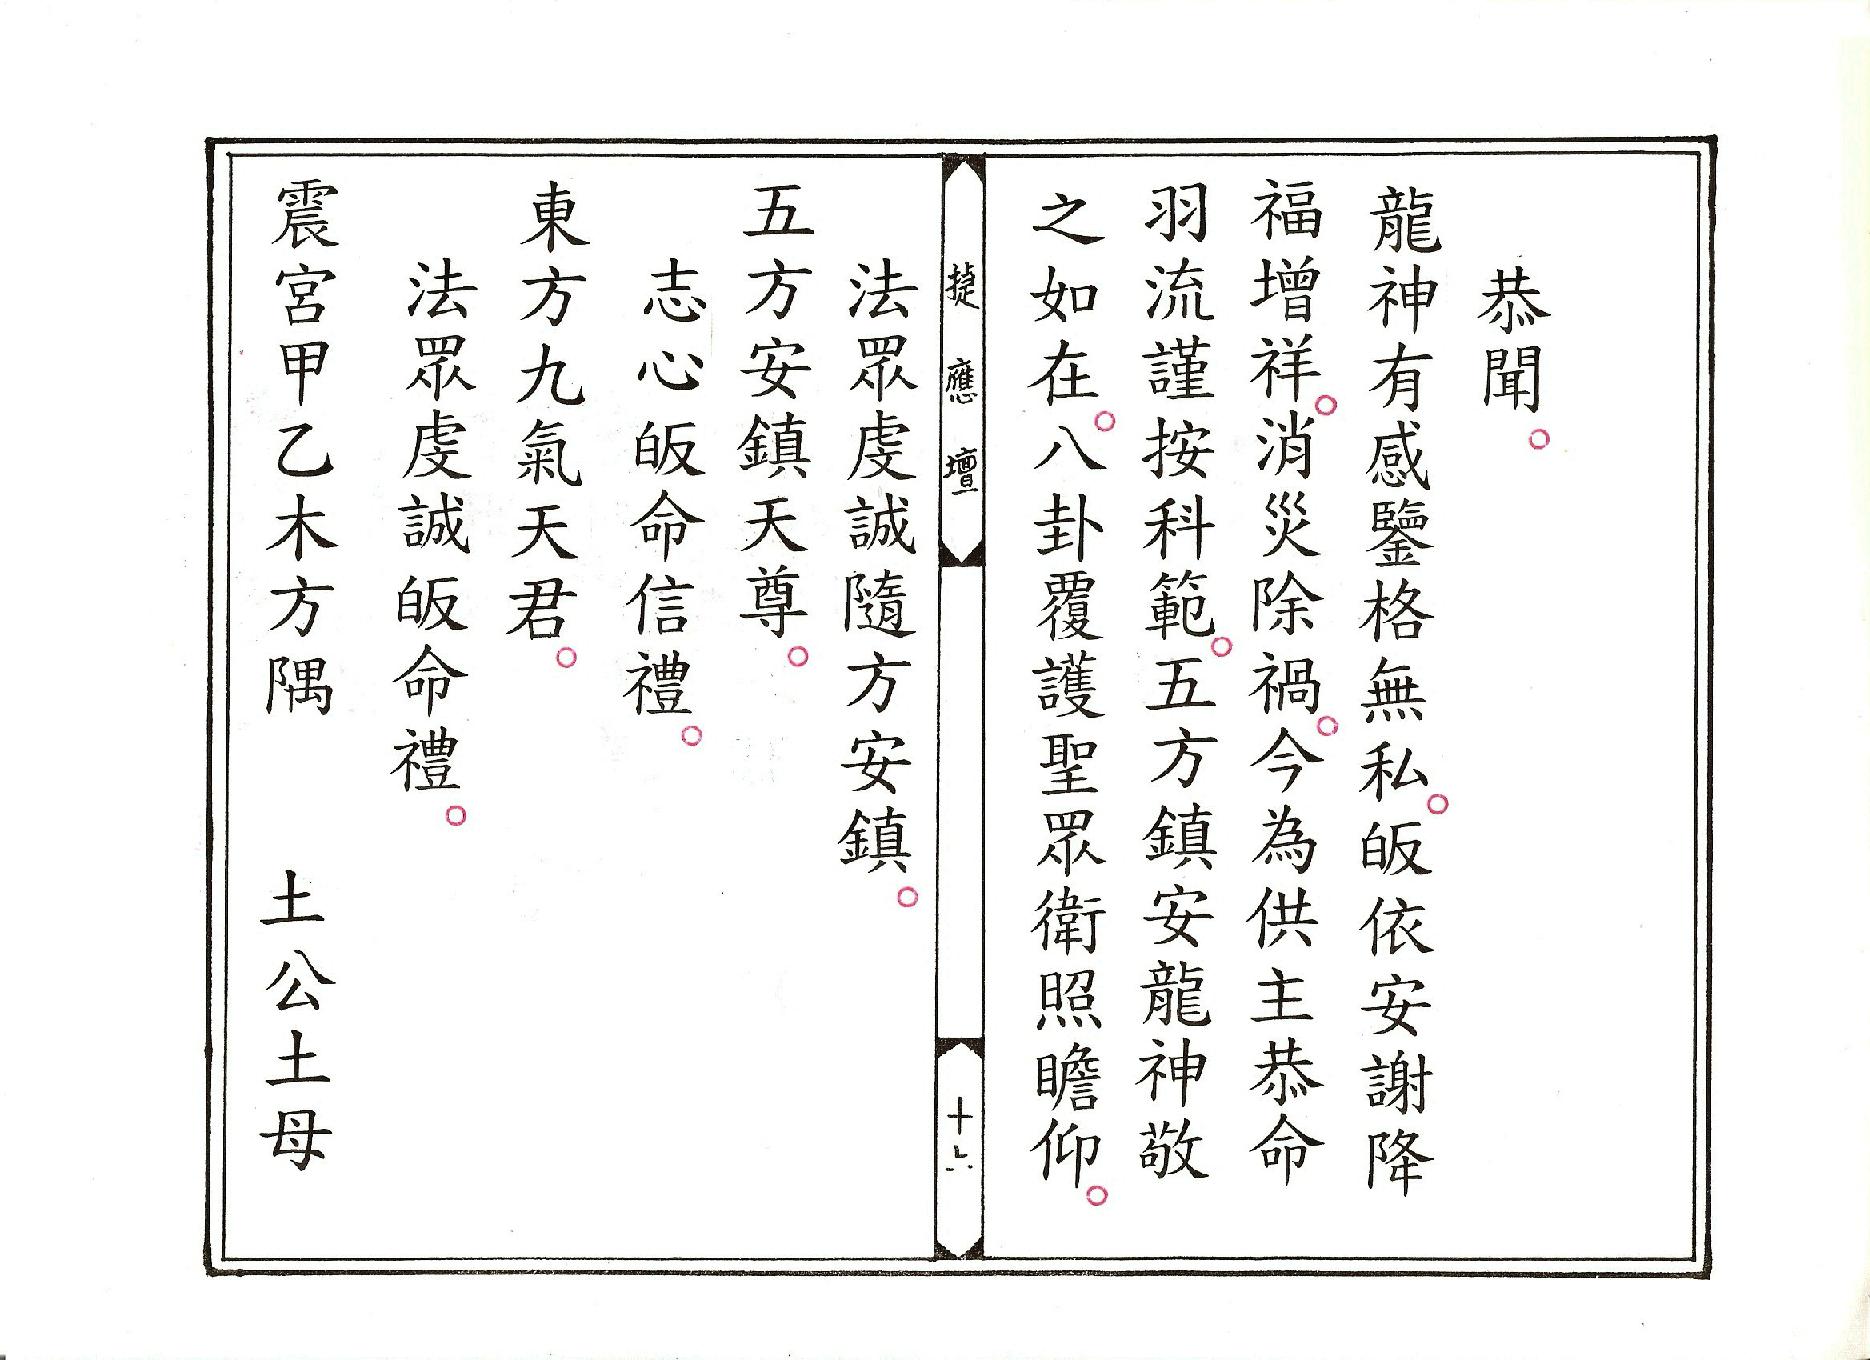 恭聞。
龍神有感鑒格無私。皈依安謝降
福增祥。消災除禍。今為供主恭命
羽流謹按科範。五方鎮安龍神敬
之如在。八卦覆護聖眾衛照瞻仰。
捷應壇
十六
法眾虔誠隨方安鎮。
五方安鎮天尊。
志心皈命信禮。
東方九氣天君。
法眾虔誠皈命禮。
震宮甲乙木方隅 土公土母